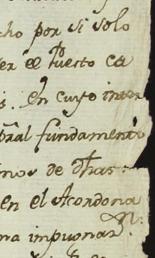 cho por si solo
er el Puesto ca
s. en cuyo inter
fundament
nos de otras
en el Acordona
na impugnar